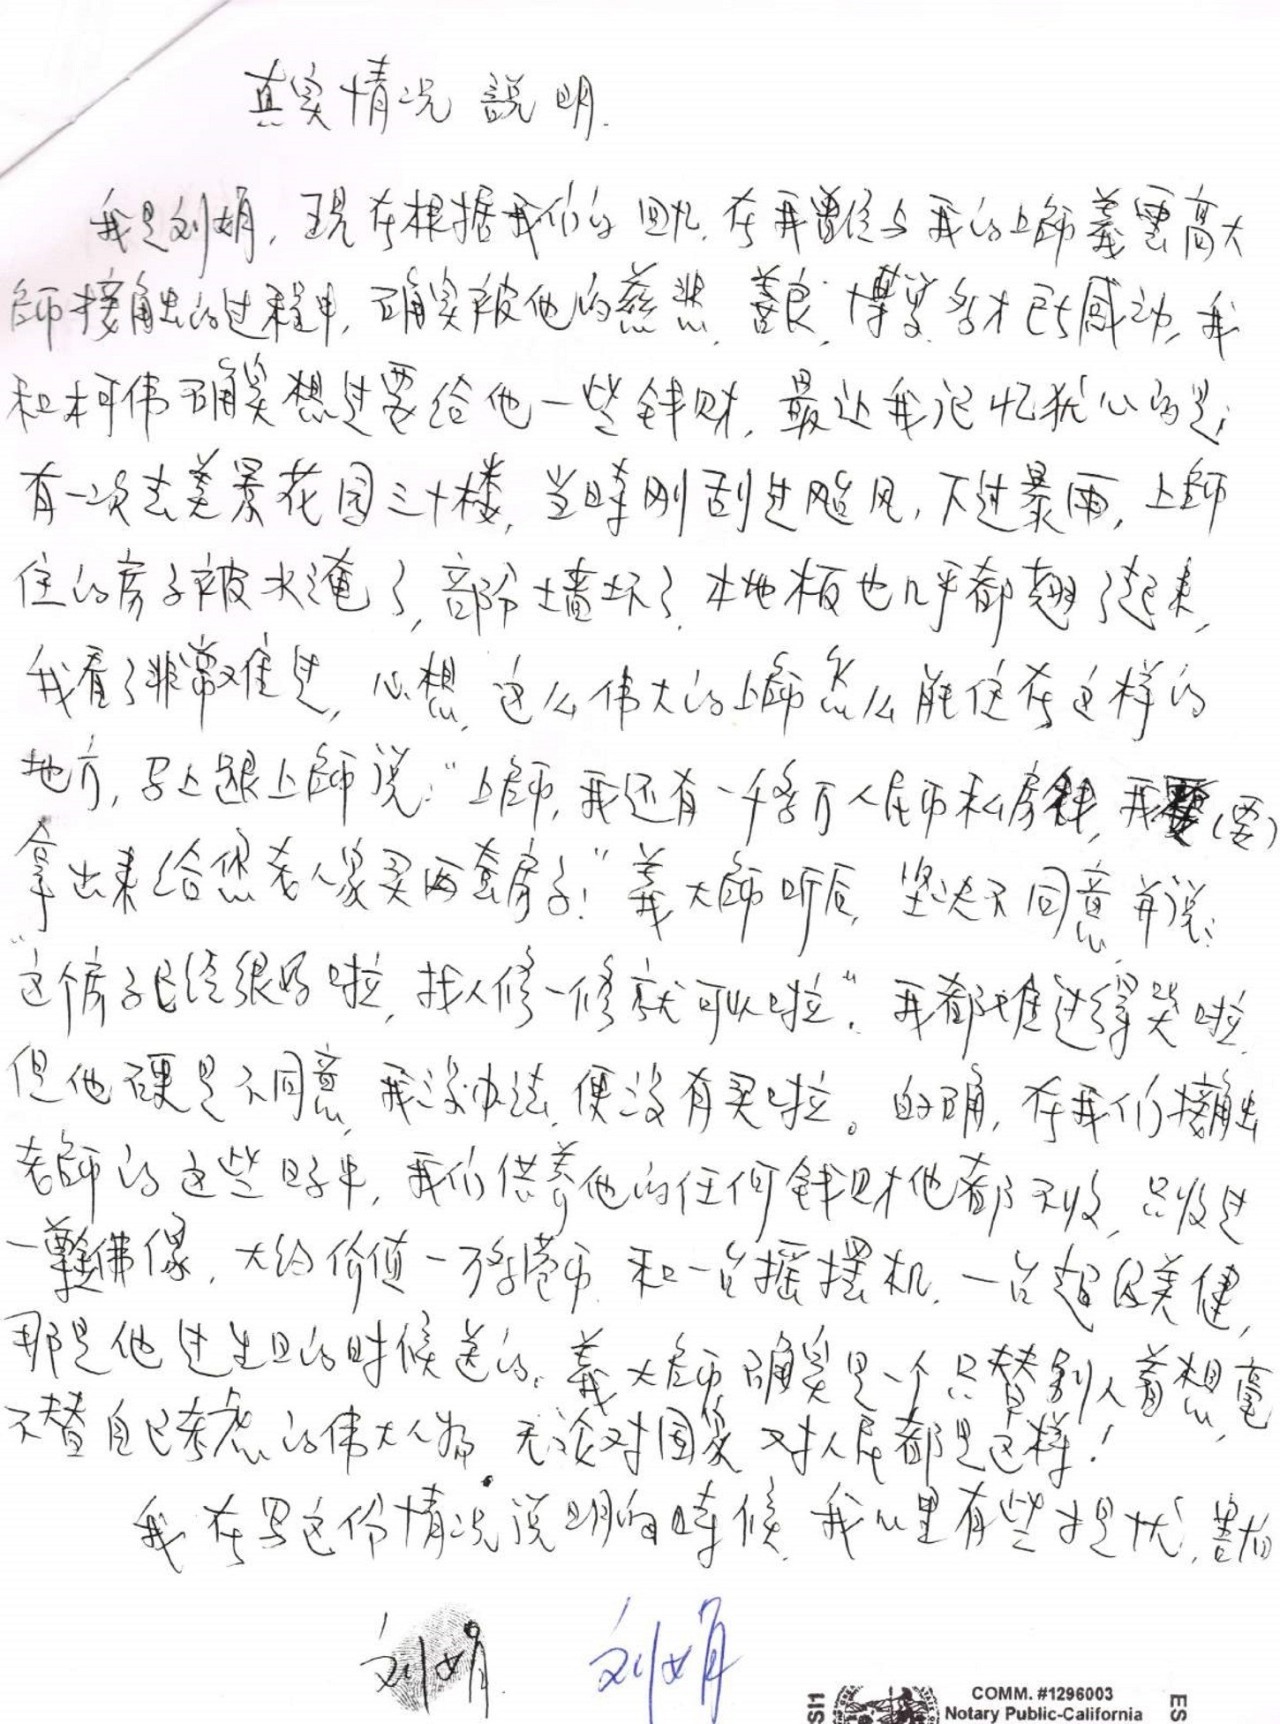 真实情况説明.
我是刘娟，现在根据我们的回忆，在我曾经与我的上師義雲高大
師接触的过程中，确实被他的慈悲，善良，博学多才所感动，我
和柯伟确实想过要给他一些钱财，最让我记忆犹心的是：
有一次去美景花园三十楼，当時刚刮过飓风，下过暴雨，上師
住的房子被水淹了，部份墙坏了，木地板也几乎都翘了起来，
我看了非常难过，心想，这么伟大的上師怎么能住在这样的
地方，马上跟上師说：“上師，我还有一千多万人民币私房钱，我要(要)
拿出来给您老人家买两套房子！”義大師听后，坚决不同意并说：
“这个房子已经很好啦，找人修一修就可以啦”。我都难过得哭啦，
但他硬是不同意，我没办法，便没有买啦。的确，在我们接触
老師的这些日子中，我们供养他的任何钱财他都不收，只收过
一尊佛像，大约价值一万多港币，和一台摇摆机，一台超级美健，
那是他过生日的时候送的。義大師确实是一个只替别人着想，毫
不替自己考虑的伟大人物，无论对国家，对人民都是这样！
我在写这份情况说明的時候，我心里有些担忧，害怕
刘娟 刘娟
COMM. #1296003
Notary Public-California